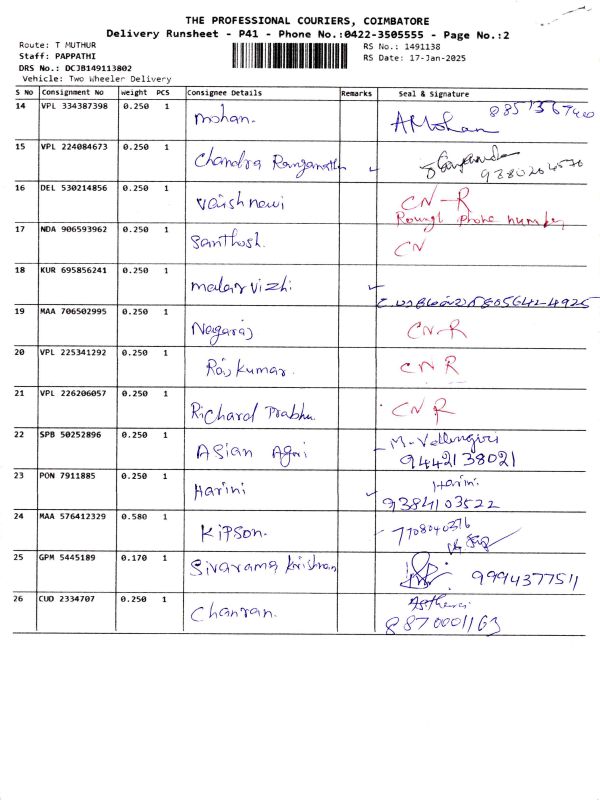 THE PROFESSIONAL COURIERS, COIMBATORE
Delivery Runsheet - P41 - Phone No.:0422-3505555 - Page No.:2
Route: T MUTHUR RS No.: 1491138
Staff: PAPPATHI RS Date: 17-Jan-2025
DRS No.: DCJB149113802
Vehicle: Two Wheeler Delivery
S No Consignment No Weight PCS Consignee Details Remarks Seal & Signature
14 VPL 334387398 0.250 1 Mohan. AMohan
15 VPL 224084673 0.250 1 Chandra Ranganathan 9380204570
16 DEL 530214856 0.250 1 Vaishnavi CN-R
Rough phone number
17 NDA 906593962 0.250 1 Santhosh. CN
18 KUR 695856241 0.250 1 malar vizhi
19 MAA 706502995 0.250 1 Nagaraj CN-R
20 VPL 225341292 0.250 1 Rajkumar. CN R
21 VPL 226206057 0.250 1 Richard Prabhu. CN R
22 SPB 50252896 0.250 1 Asian Agri M. Vellingiri
9442138021
23 PON 7911885 0.250 1 Harini Harini
9384103522
24 MAA 576412329 0.580 1 Kipson. 7708040376
25 GPM 5445189 0.170 1 Sivarama Krishnan 9994377511
26 CUD 2334707 0.250 1 Chanran.
8870001163